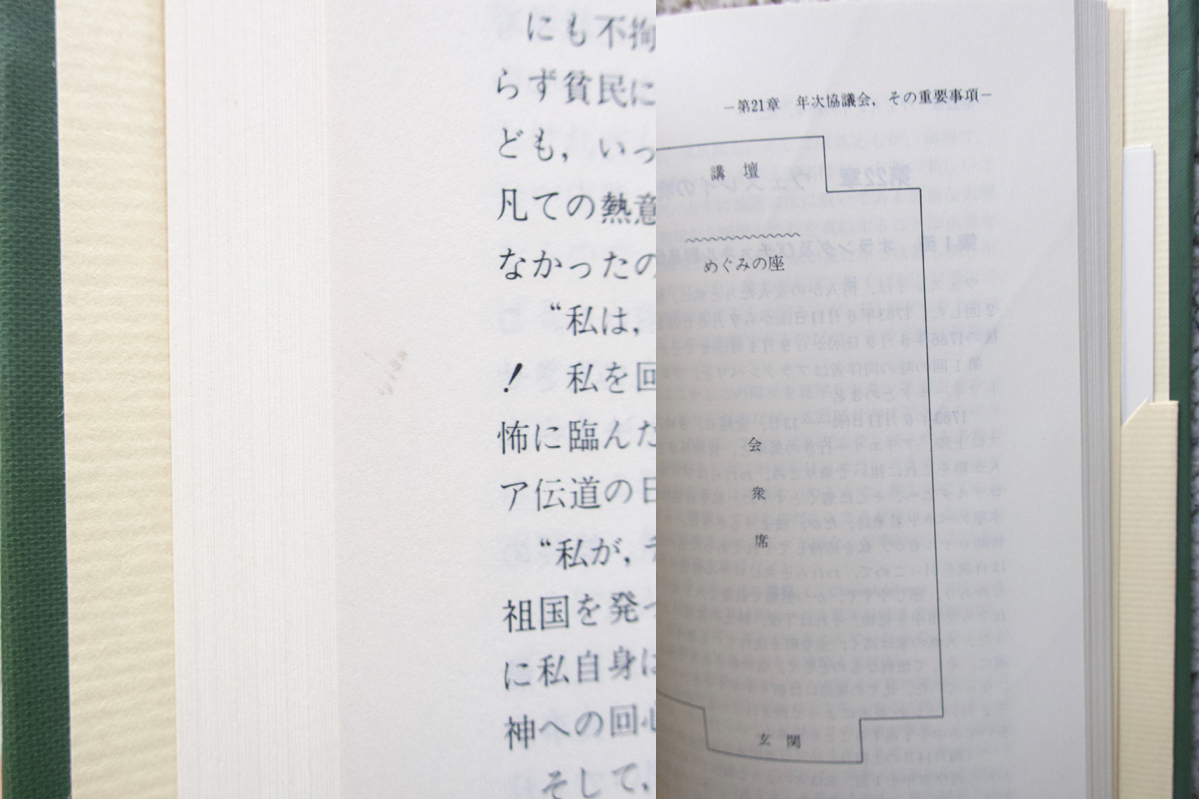 にも不拘
らず貧民に
ども，いっ
凡ての熱意
なかったの
“私は，
！　私を回
怖に臨んだ
ア伝道の日
“私が，
祖国を発つ
に私自身に
神への回心
そして，
―第21章　年次協議会，その重要事項―
講　壇
めぐみの座
会
衆
席
玄　関